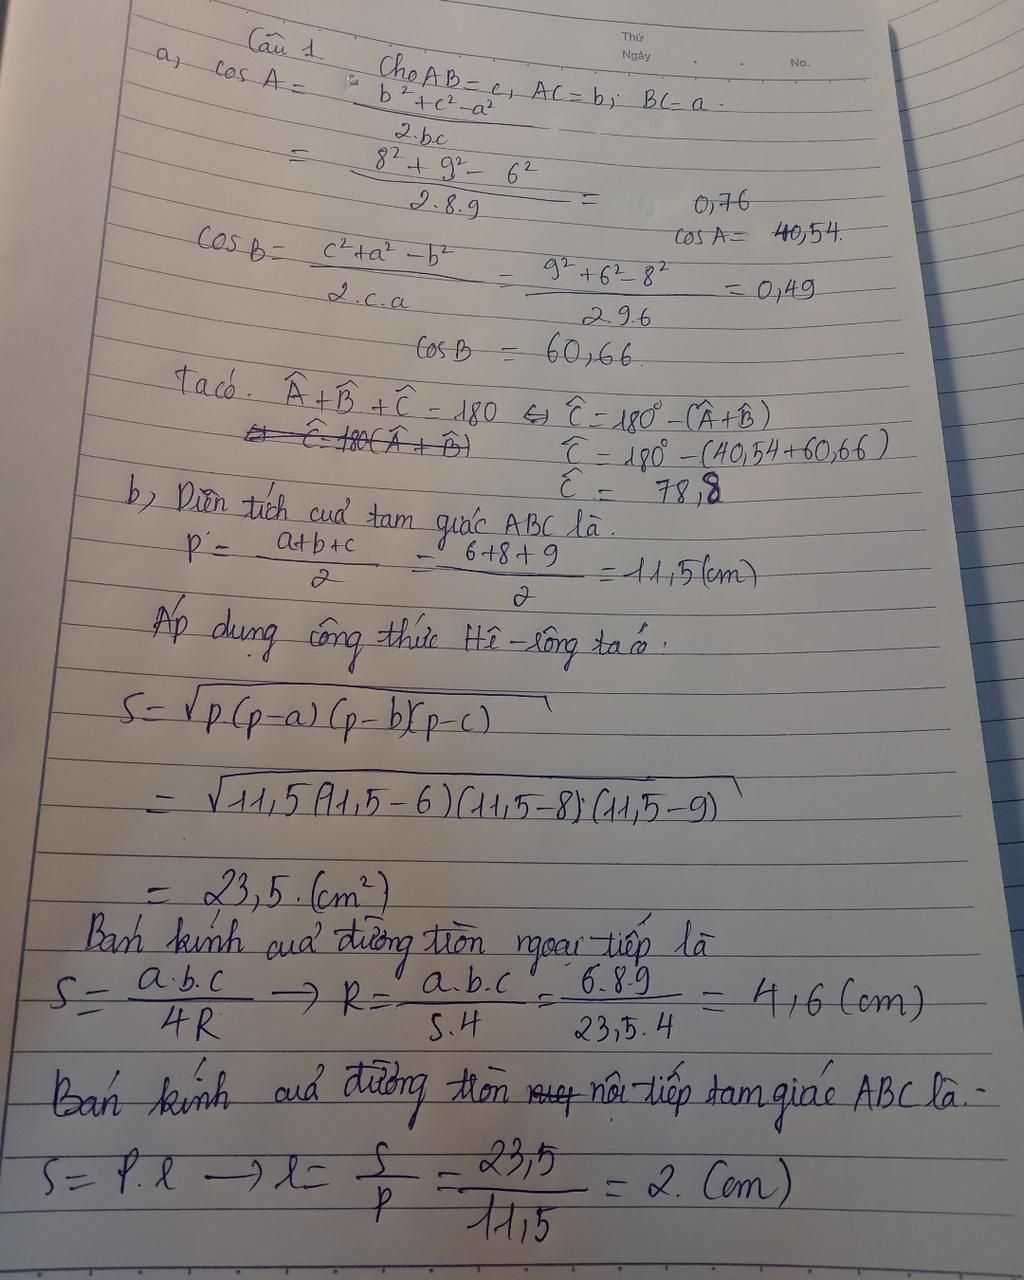 Thứ
Ngày . . No.
Câu 1 Cho AB = c, AC = b; BC = a.
a, cos A = b² + c² - a² / 2.bc
= 8² + 9² - 6² / 2.8.9 = 0,76
cos A = 40,54.
cos B = c² + a² - b² / 2.c.a = 9² + 6² - 8² / 2.9.6 = 0,49
cos B = 60,66
Ta có. Â + B̂ + Ĉ = 180 ⇔ Ĉ = 180° - (Â + B̂)
⇔ Ĉ = 180(Â + B̂) Ĉ = 180° - (40,54 + 60,66)
Ĉ = 78,8
b, Diễn tích cuả tam giác ABC là.
P = a+b+c / 2 = 6+8+9 / 2 = 11,5 (cm)
Áp dụng công thức Hê-rông ta có.
S = √p.(p-a)(p-b)(p-c)
= √11,5(11,5-6)(11,5-8)(11,5-9)
= 23,5. (cm²)
Bán kính cuả đường tròn ngoại tiếp là
S = a.b.c / 4R → R = a.b.c / S.4 = 6.8.9 / 23,5.4 = 4,6 (cm)
Bán kính cuả đường tròn nội tiếp tam giác ABC là.-
S = P.r → r = S / P = 23,5 / 11,5 = 2. (cm)